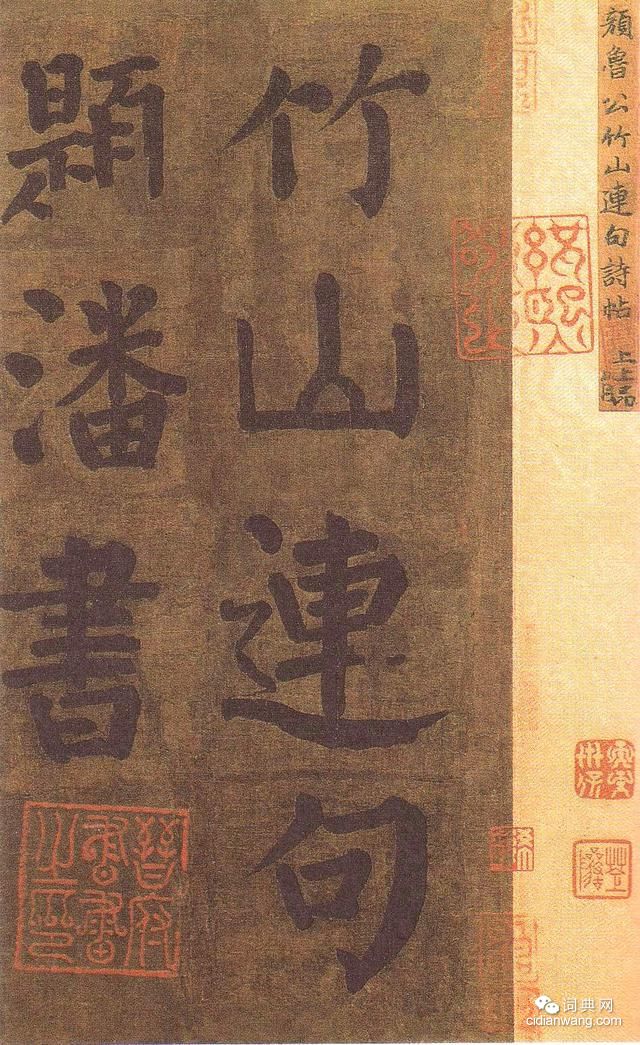 顏魯公竹山連句詩帖 上上
竹山連句
題潘書
晉府書畫之印
词典网
cidianwang.com